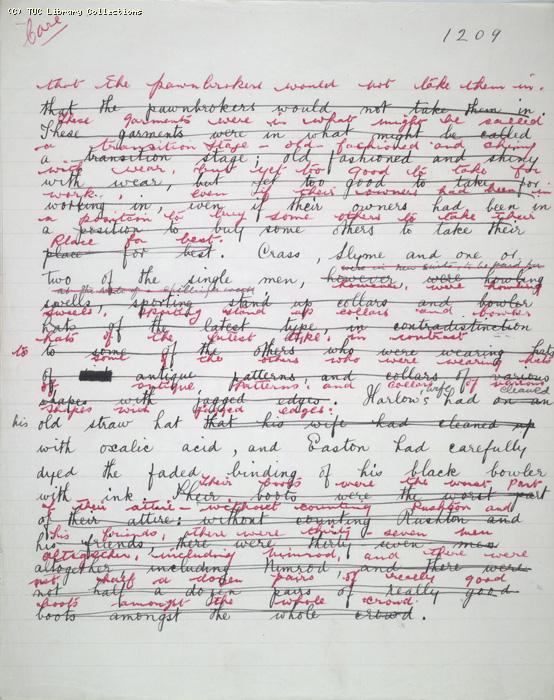 (C) TUC Library Collections
Care
1209
that the pawnbrokers would not take them in.
that the pawnbrokers would not take them in
These garments were in what might be called
These garments were in what might be called
a transition stage - old fashioned and shiny
a transition stage; old fashioned and shiny
with wear, but yet too good to take for
with wear, but yet too good to take for
work, even if their owners had been in
working in, even if their owners had been in
a position to buy some others to take their
a position to buy some others to take their
Place for best.
place for best. Crass, Slyme and one or
two of the single men, however were howling
however, were howling
spells, sporting stand up collars and bowler
swells, sporting stand up collars and bowler
hats of the latest type, in contradistinction
hats of the latest type, in contrast
to some of the others who were wearing hats
to some of the others who were wearing hats
of antique patterns and collars of various
of antique patterns, and collars of various
shapes with jagged edges. Harlow's wife had cleaned on an
shapes with jagged edges.
his old straw hat that his wife had cleaned up
with oxalic acid, and Easton had carefully
dyed the faded binding of his black bowler
Their boots were the worst part
with ink. Their boots were the worst part
of their attire - without counting Rushton and
of their attire: without counting Rushton and
his friends, there were thirty-seven men
his friends, there were thirty seven men
altogether, including Nimrod, and there were
altogether including Nimrod and there were
not half a dozen pairs of really good
not half a dozen pairs of really good
boots amongst the whole crowd.
boots amongst the whole crowd.